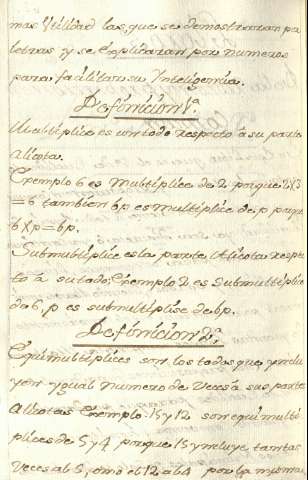 mas Utilidad las, que se demostraran pa
letras y se Explicaran por numeros
para facilitar su Inteligencia.
Definicion 1ª.
Multiplice es un todo respecto à su parte
Alicota.
Exemplo 6 es Multiplice de 2 porque 2X3
=6 tambien bp es Multiplice de p porque
bXp=bp.
Submultiplice es la parte Alicota respec
to à su todo, Exemplo 2 es Submultiplice
de 6, p es submultiplice de bp.
Definicion 2ª.
Equimultiplices son los todos que ynclu
yen ygual numero de Veces à sus partes
Alicotas Exemplo. 15 y 12 son equimulti
plices de 5 y 4 porque 15 yncluye tantas
Veces al 5, como el 12 al 4 por la misma